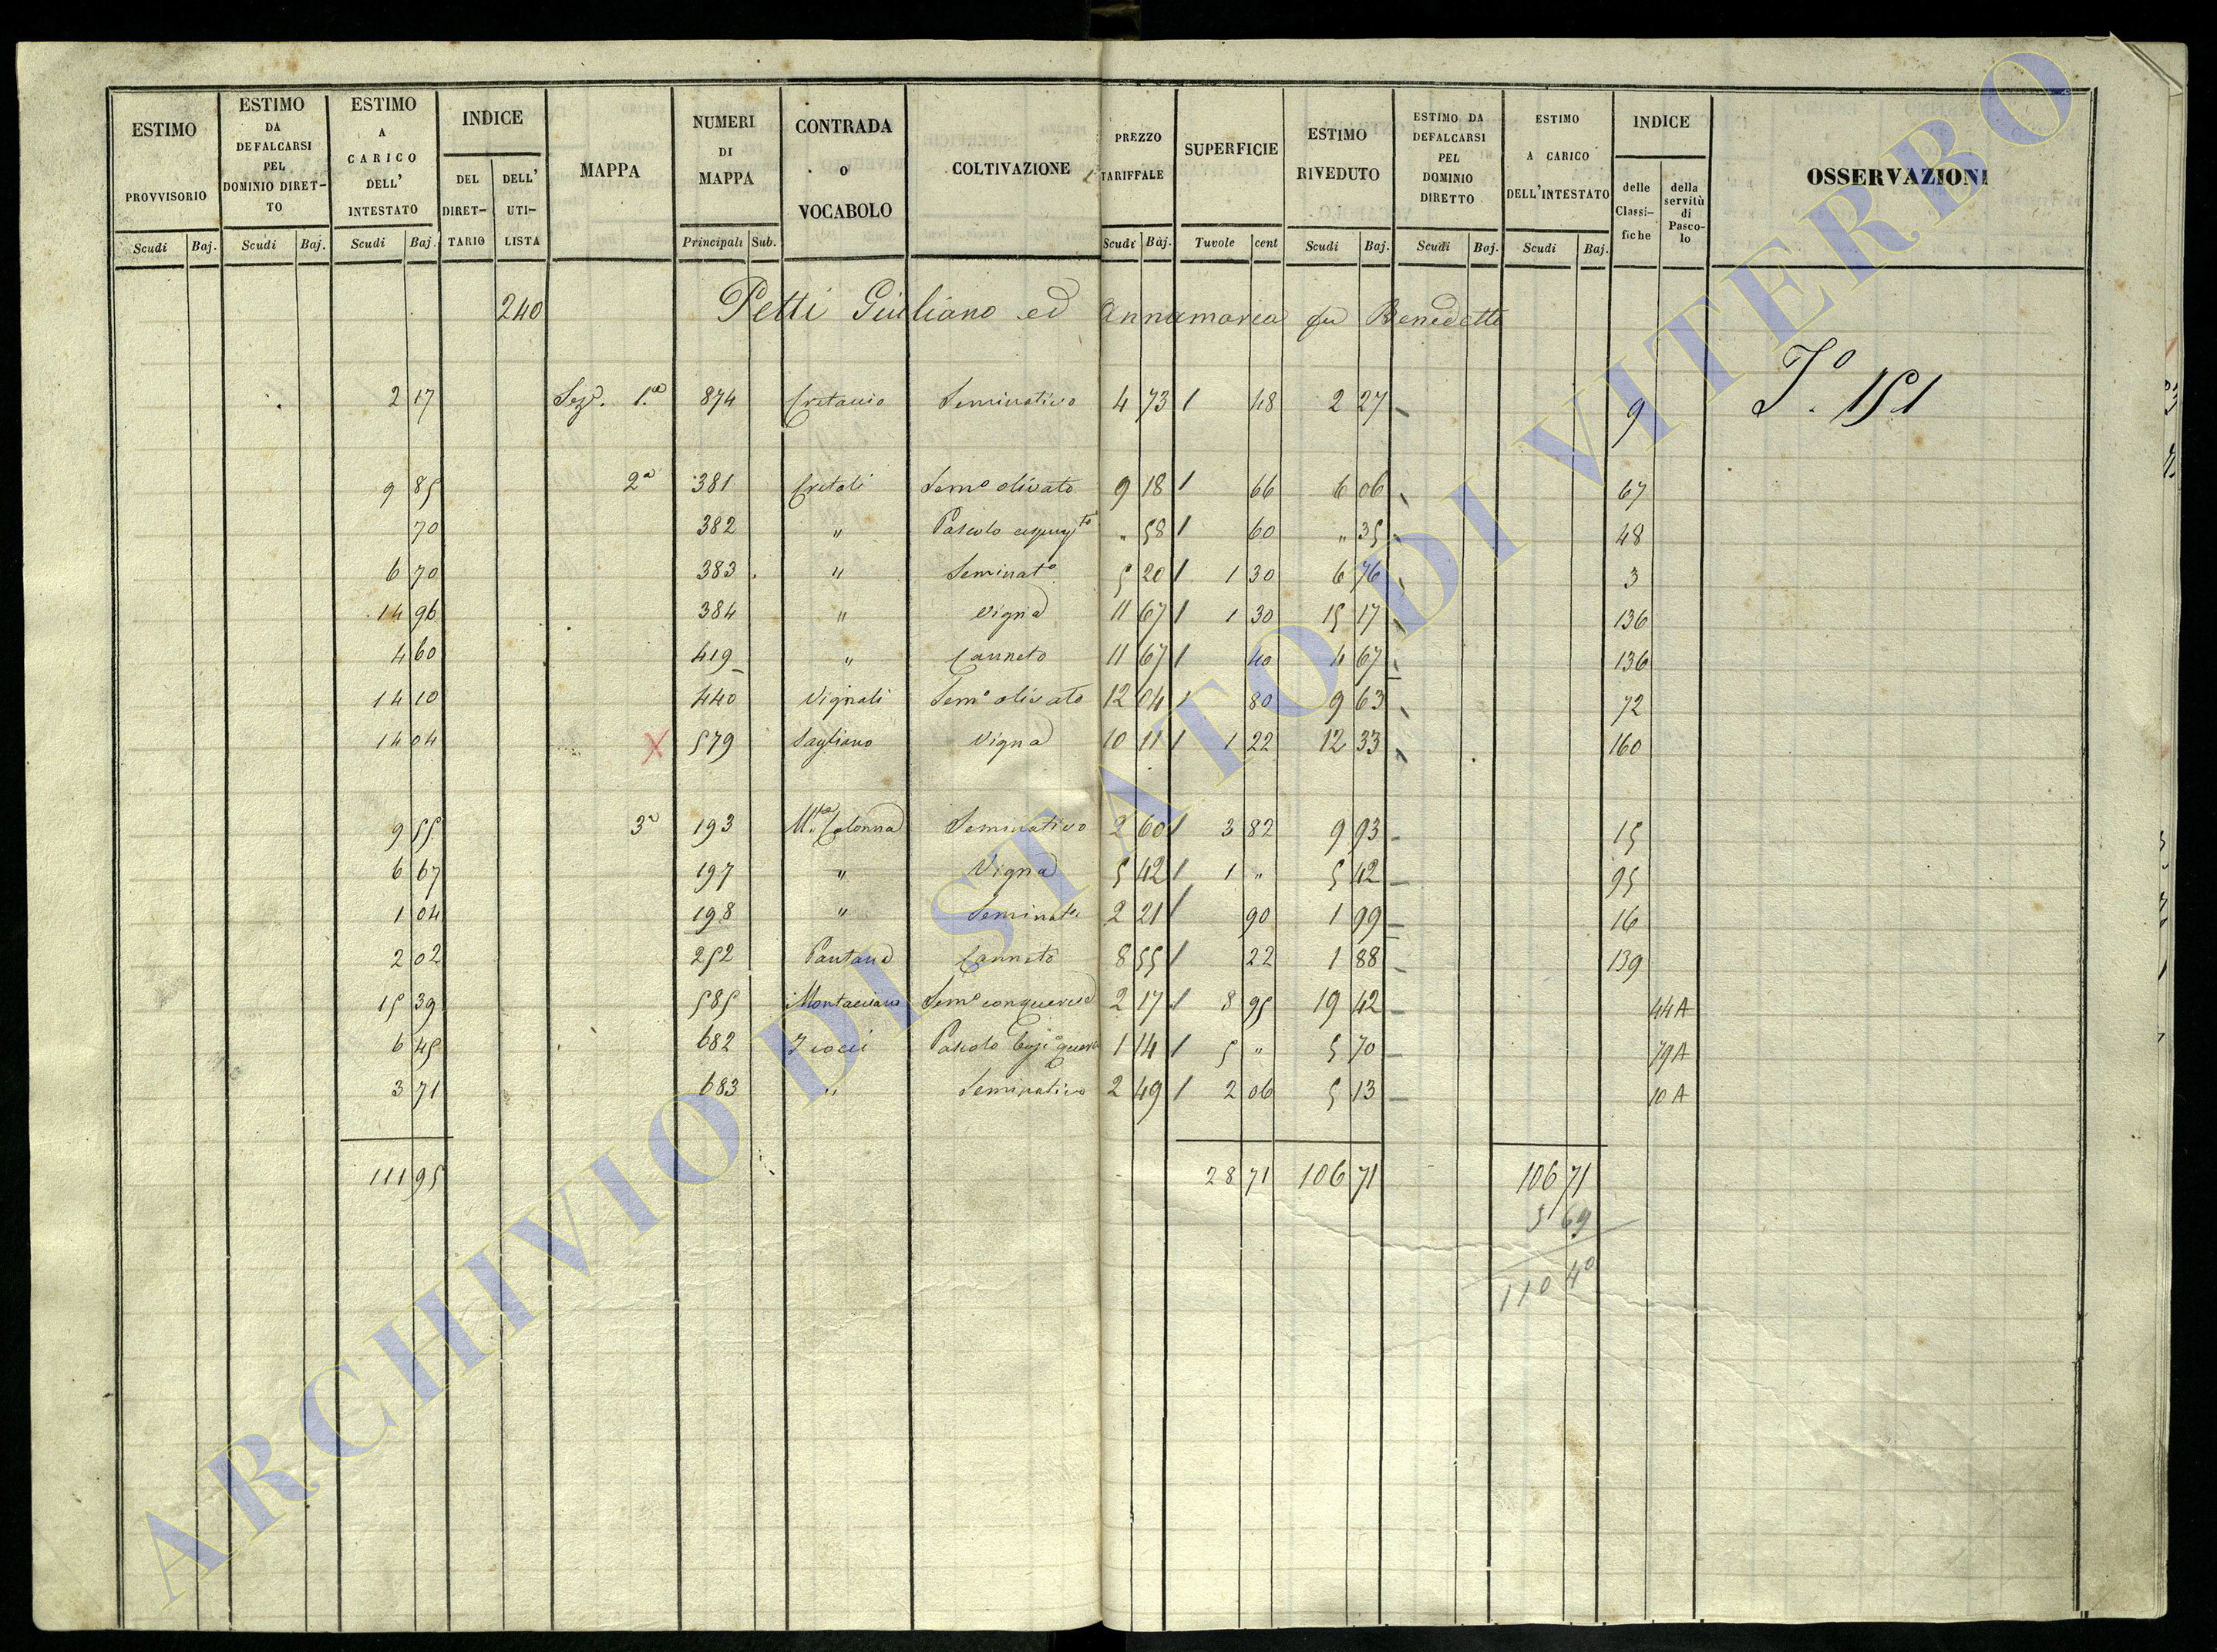 ESTIMO PROVVISORIO Scudi Baj.
ESTIMO DA DEFALCARSI PEL DOMINIO DIRETTO Scudi Baj.
ESTIMO A CARICO DELL' INTESTATO Scudi Baj.
INDICE DEL DIRETTARIO DELL' UTILISTA
MAPPA
NUMERI DI MAPPA Principali Sub.
CONTRADA o VOCABOLO
COLTIVAZIONE
PREZZO TARIFFALE Scudi Baj.
SUPERFICIE Tavole cent
ESTIMO RIVEDUTO Scudi Baj.
ESTIMO DA DEFALCARSI PEL DOMINIO DIRETTO Scudi Baj.
ESTIMO A CARICO DELL'INTESTATO Scudi Baj.
INDICE delle Classifiche della servitù di Pascolo
OSSERVAZIONI
240 Petti Giuliano ed Annamaria fu Benedetto
2 17 Sez. 1.a 874 Seminativo 4 73 / 48 2 27 9 151
9 85 2a 381 Sem.o olivato 9 18 / 66 6 06 67
70 382 " Pascolo " 58 / 60 " 35 48
6 70 383 " Seminat.o 5 20 / 1 30 6 76 3
14 96 384 " Vigna 11 67 / 1 30 15 17 136
4 60 419 " Canneto 11 67 / 40 4 67 136
14 10 440 Vignali Sem.o olivato 12 04 / 80 9 63 72
14 04 X 579 Sagliano Vigna 10 11 / 1 22 12 33 160
9 55 3a 193 M.te Colonna Seminativo 2 60 / 3 82 9 93 15
6 67 197 " Vigna 5 42 / 1 " 5 42 95
1 04 198 " Seminat.o 2 21 / 90 1 99 16
2 02 252 Pantana Canneto 8 55 / 22 1 88 139
15 39 585 Sem.o 2 17 / 8 95 19 42 44A
6 45 682 Pascolo 1 14 / 5 " 5 70 79A
3 71 683 " Seminativo 2 49 / 2 06 5 13 10A
111 95 28 71 106 71 106 71
5 69
110 40
ARCHIVIO DI STATO DI VITERBO